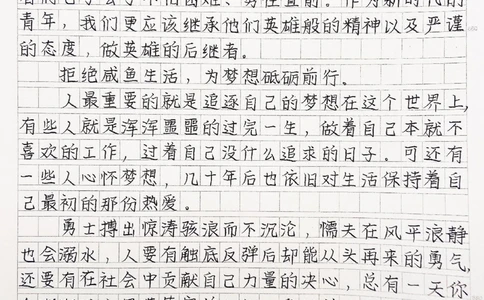 青年，我们更应该继承他们英雄般的精神以及严谨
的态度，做英雄的后继者。
拒绝咸鱼生活，为梦想砥砺前行。
人最重要的就是追逐自己的梦想在这个世界上，
有些人就是浑浑噩噩的过完一生，做着自己本就不
喜欢的工作，过着自己没什么追求的日子。可还有
一些人心怀梦想，几十年后也依旧对生活保持着自
己最初的那份热爱。
勇士搏出惊涛骇浪而不沉沦，懦夫在风平浪静
也会溺水，人要有触底反弹后却能从头再来的勇气，
还要有在社会中贡献自己力量的决心，总有一天你